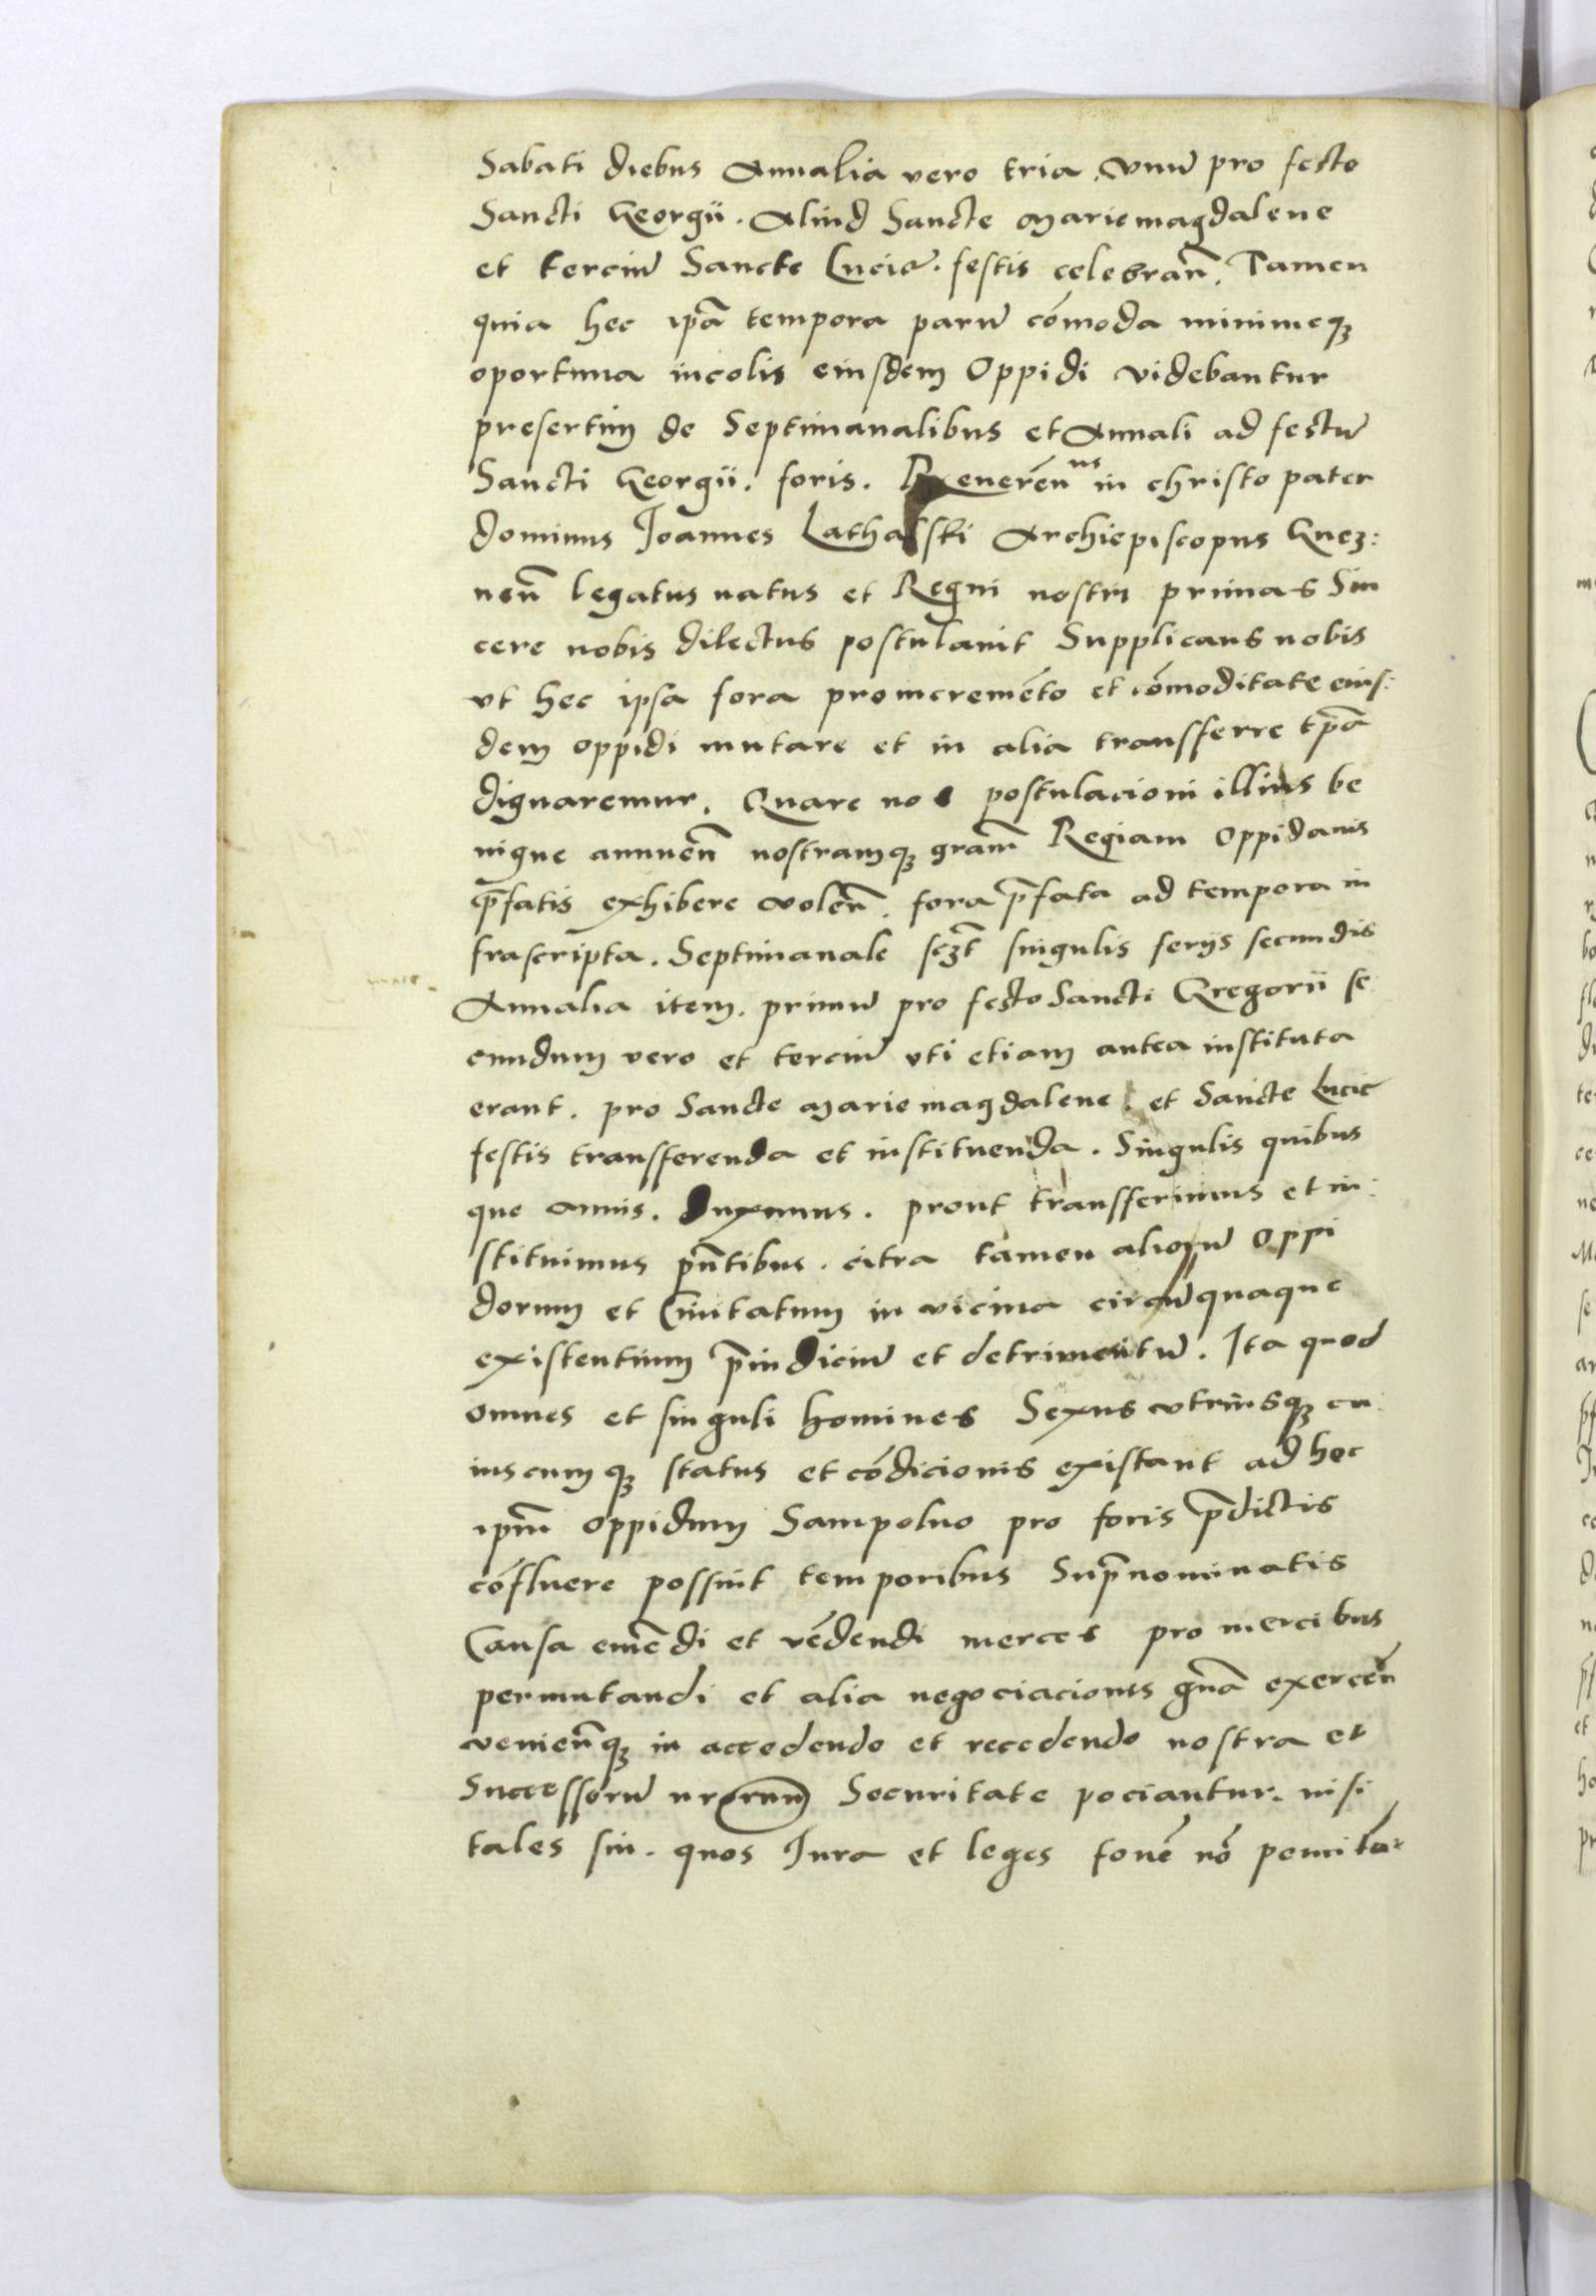 Sabati diebus Annalia vero tria . vnū pro festo
Sancti Georgii . Aliud Sancte Marie magdalene
et terciū Sancte Lucie . festis celebrañ . Tamen
quia hec ipā tempora parū cōmoda minimeqꝫ
oportuna incolis eiusdem Oppidi videbantur
presertim de Septimanalibus et Annali ad festū
Sancti Georgii . foris . Reuereñ in christo pater
dominus Joannes Lathalski Archiepiscopus Gnez:
neñ legatus natus et Regni nostri primas Sin
cere nobis dilectus postulauit Supplicans nobis
vt hec ipsa fora pro incremēto et cōmoditate eius:
dem oppidi mutare et in alia transfferre tp̄ā
dignaremur . Quare nos postulacioni illius be
nigne annueñ nostramqꝫ grām̄ Regiam Oppidanis
p̄fatis exhibere voleñ . fora p̄fata ad tempora in
frascripta . Septimanale sczt̄ singulis ferijs secundis
Annalia item . primū pro festo Sancti Gregorii se
cundum vero et terciū vti etiam antea instituta
erant . pro Sancte Marie magdalene . et Sancte Lucie
festis transferenda et instituenda . Singulis quibus
que annis . Duximus . prout transferimus et in:
stituimus pn̄tibus . citra tamen aliorū Oppi
dorum et Ciuitatum in vicina circūquaque
existentium p̄iudiciū et detrimentū . Ita quod
omnes et singuli homines Sexus vtriusqꝫ cu
iuscumqꝫ status et cōdicionis existant ad hoc
ipm̄ oppidum Sampolno pro foris p̄dictis
cōfluere possint temporibus Sup̄nominatis
Causa emēdi et vēdendi merces pro mercibus
permutandi et alia negociacionis gn̄ā exerceñ
venieñqꝫ in accedendo et recedendo nostra et
Successorū nrorum Securitate pociantur . nisi
tales sin . quos Jura et leges fouē nō